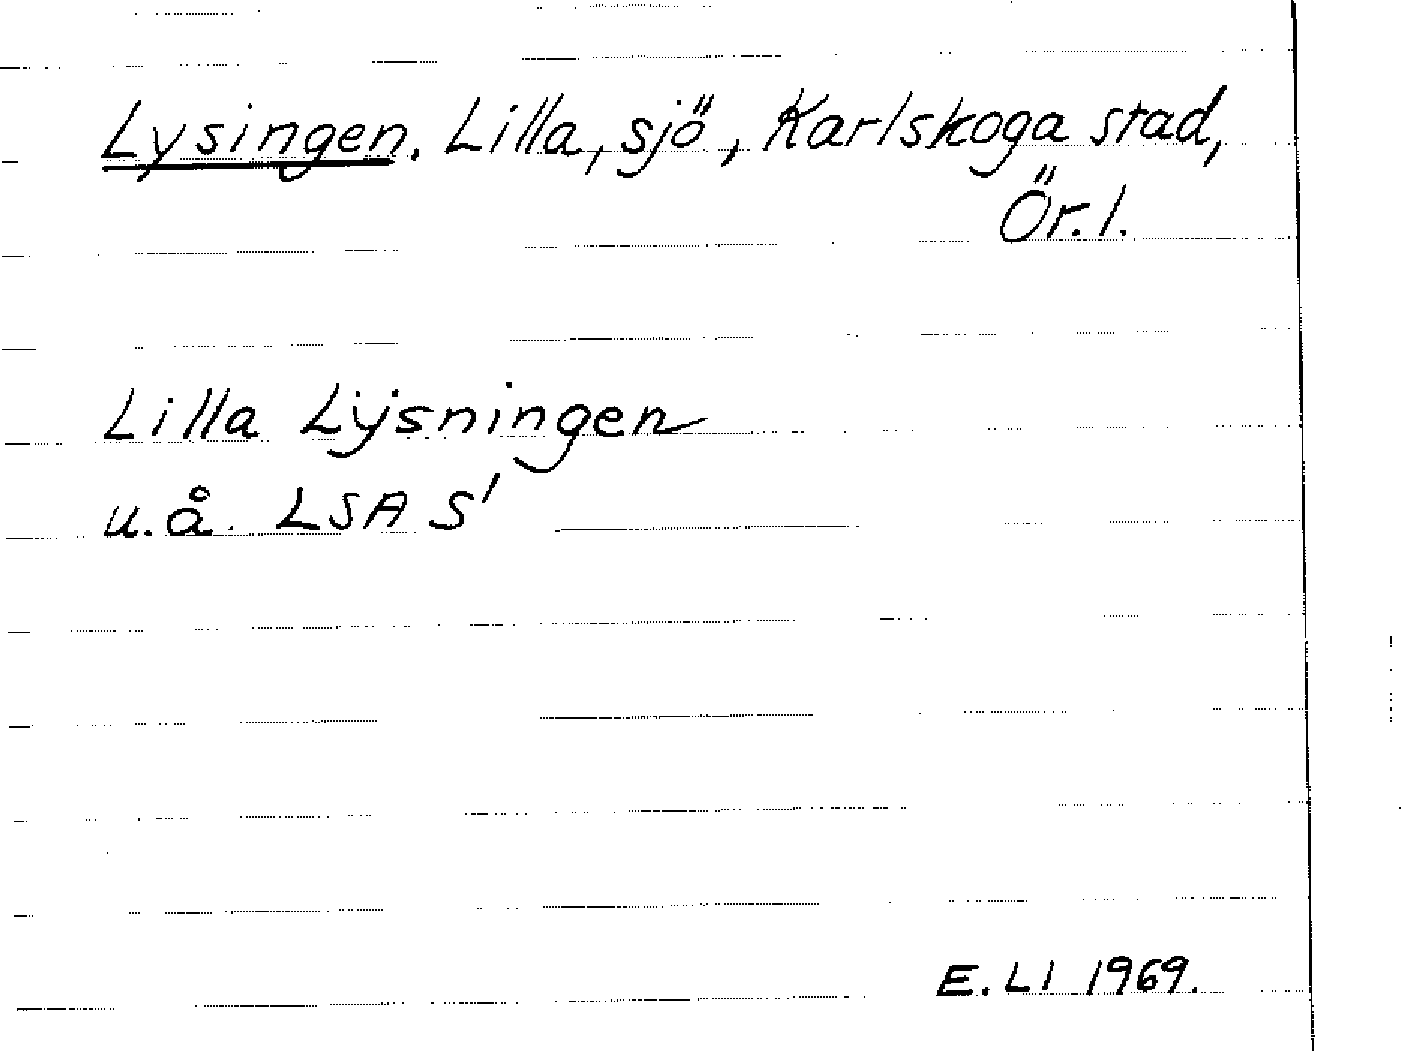 Lysingen. Lilla, sjö, Karlskoga stad,
Ör. l.
Lilla Lÿsningen
u.å. LSA S'
E. LI 1969.